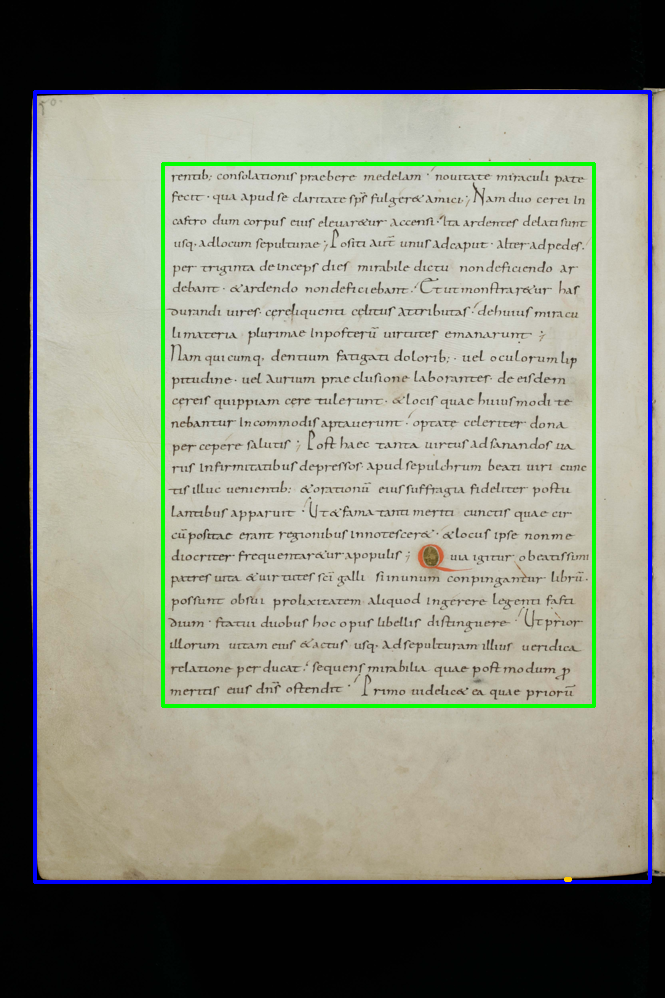 50.
rentib; consolationis praebere medelam · nouitate miraculi pate
fecit · qua apud se claritate sp̄s fulger& amici; Nam duo cerei in
castro dum corpus eius eleuar&ur accensi · Ita ardentes delati sunt
usq· ad locum sepulturae; Positi aut̄ unus ad caput · alter ad pedes.
per triginta deinceps dies mirabile dictu non deficiendo ar
debant · & ardendo non deficiebant · Et ut monstrar&ur has
durandi uires · cerę liquenti cęlitus attributas · de huius miracu
li materia plurimae in posterū uirtutes emanarunt;
Nam quicumq· dentium fatigati dolorib; · uel oculorum lip
pitudine · uel aurium praeclusione laborantes · de eisdem
cereis quippiam cęre tulerunt · & locis quae huiusmodi te
nebantur incommodis aptauerunt · optate celeriter dona
percepere salutis; Post haec tanta uirtus ad sanandos ua
rus infirmitatibus depressos · apud sepulchrum beati uiri cunc
tis illuc uenientib; & orationū eius suffragia fideliter postu
lantibus apparuit · Ut & fama tanti meriti cunctis quae cir
cū positae erant regionibus innotescer& · & locus ipse non me
diocriter frequentar&ur a populis; Quia igitur ob eatissimi
patres uita & uirtutes sc̄i galli si in unum conpingantur librū ·
possunt obsui prolixitatem aliquod ingerere legenti fasti
dium · statui duobus hoc opus libellis distinguere · Ut prior
illorum uitam eius & actus usq· ad sepulturam illius ueridica
relatione perducat · sequens mirabilia quae postmodum ꝓ
meritis eius dn̄s ostendit · Primo uidelic& ea quae priorū